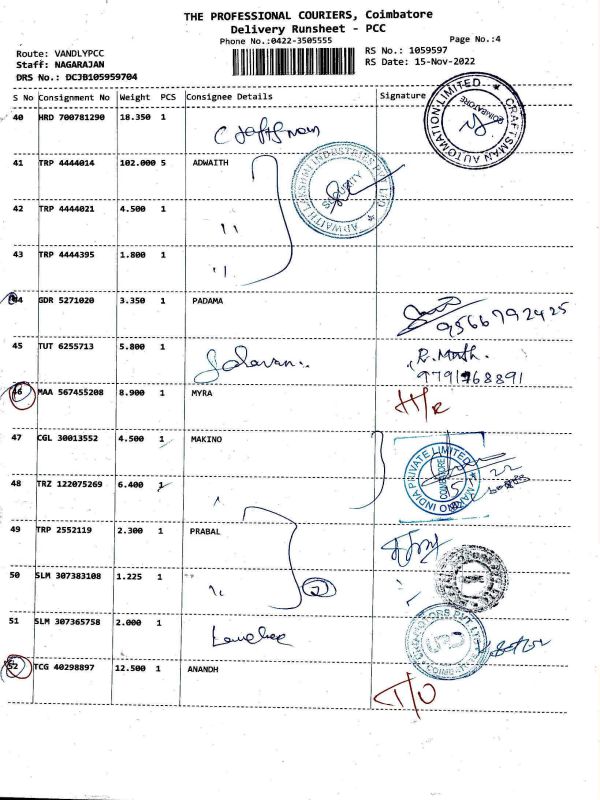 THE PROFESSIONAL COURIERS, Coimbatore
Delivery Runsheet - PCC
Phone No.:0422-3505555
Page No.:4
Route: VANDLYPCC
RS No.: 1059597
Staff: NAGARAJAN
RS Date: 15-Nov-2022
DRS No.: DCJB105959704
S No Consignment No Weight PCS Consignee Details Signature
40 HRD 700781290 18.350 1
CRAFTSMAN AUTOMATION LIMITED
COIMBATORE
41 TRP 4444014 102.000 5 ADWAITH
ADWAITH LAKSHMI INDUSTRIES PVT LTD
SECURITY
42 TRP 4444021 4.500 1
"
43 TRP 4444395 1.800 1
"
44 GDR 5271020 3.350 1 PADAMA
9566792425
45 TUT 6255713 5.800 1
R. Math.
9791768891
46 MAA 567455208 8.900 1 MYRA
H/R
47 CGL 30013552 4.500 1 MAKINO
MAKINO INDIA PRIVATE LIMITED
COIMBATORE
48 TRZ 122075269 6.400 1
49 TRP 2552119 2.300 1 PRABAL
50 SLM 307383108 1.225 1
"
51 SLM 307365758 2.000 1
52 TCG 40298897 12.500 1 ANANDH
T/O